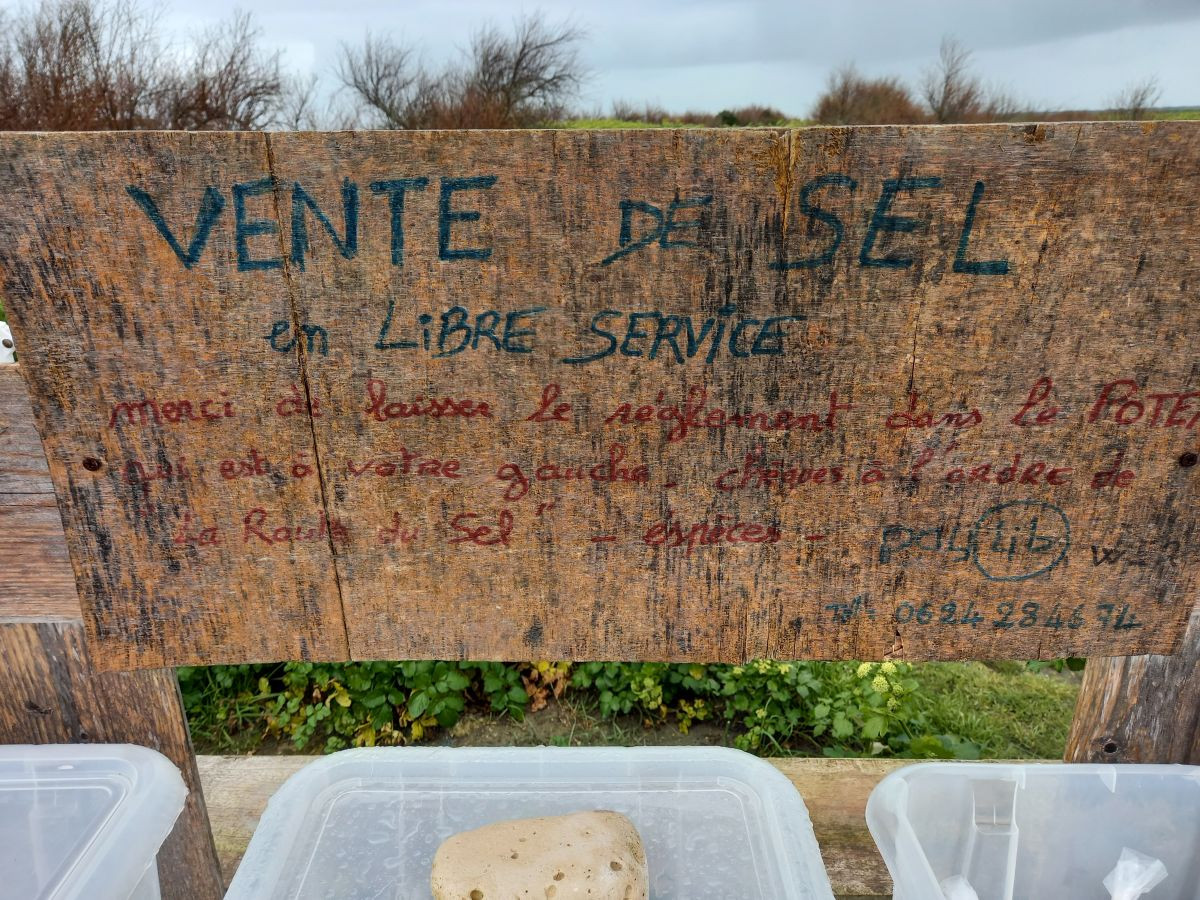 VENTE DE SEL
en LIBRE SERVICE
merci de laisser le réglement dans le POTEA
qui est à votre gauche. chèques à l'ordre de
"La Route du Sel" - espèces - paylib
Tél: 0624284674